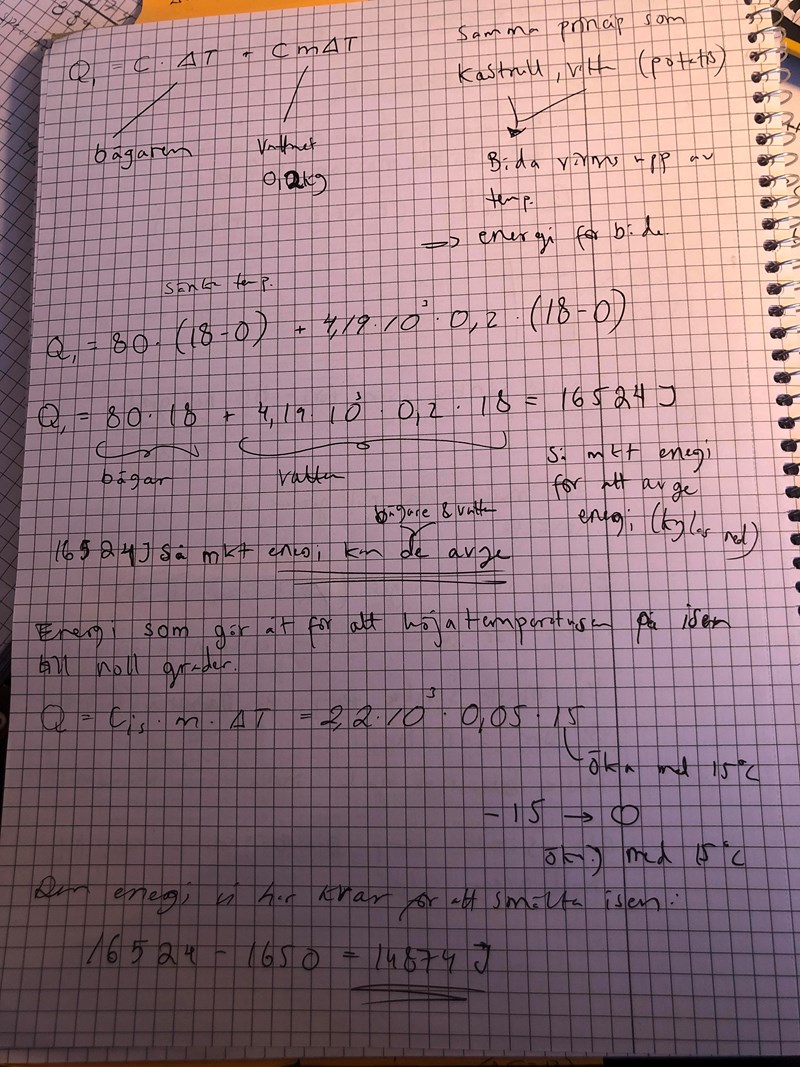 Q₁ = C · ΔT + CmΔT
bägaren
Vattnet
0,2kg
Samma princip som
kastrull, vatten (potatis)
Båda värms upp av
temp.
=> energi för båda
sänka temp.
Q₁ = 80 · (18-0) + 4,19·10³ · 0,2 · (18-0)
Q₁ = 80 · 18 + 4,19 · 10³ · 0,2 · 18 = 16524 J
bägar
vatten
Så mkt energi
för att avge
energi (kylas ned)
bägare & vatten
16524J Så mkt energi kan de avge
Energi som går åt för att höja temperaturen på isen
till noll grader.
Q = Cis · m · ΔT = 2,2·10³ · 0,05 · 15
Öka med 15°C
-15 → 0
med 15°C
Den energi vi har kvar för att smälta isen:
16524 - 1650 = 14874 J